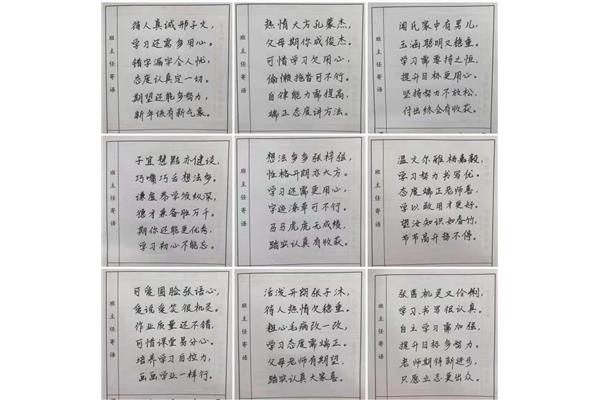 班主任寄语
待人真诚邢子文，
学习还需多用心。
错字漏字令人忧，
态度认真定一切。
期望还能多努力，
新年级有新气象。
班主任寄语
热情大方孔蒙杰，
父母期你成俊杰。
可惜学习欠用心，
偷懒拖沓可不行。
自律能力需提高，
端正态度讲方法。
班主任寄语
闻氏家中有男儿，
玉涵聪明又稳重。
学习需要持之恒，
提升目标更用心。
坚持努力不放松，
付出终会有收获。
班主任寄语
子宜慧黠亦健谈，
巧嘴巧舌想法多。
谦虚恭学须纵深，
德才兼备胜万千。
期你还能更优秀，
学习初心不能忘。
班主任寄语
想法多多张梓
性格开朗亦大方。
学习还需更用心，
字迹潦草可不行。
马马虎虎无成绩，
踏实认真有收获。
班主任寄语
温文尔雅杨嘉毅，
学习努力书写优。
态度端正老师喜，
学以致用才更好。
望汝知识如春竹，
节节高升皆不停。
班主任寄语
可爱圆脸张语心，
爱说爱笑很机灵。
作业质量还不错，
可惜课堂易分心。
培养学习自控力，
画画学业一样行。
班主任寄语
活泼开朗张子沐，
待人热情欠稳重。
粗心毛病改一改，
学习态度需端正。
父母老师有期望，
踏实认真大家喜。
班主任寄语
机灵又伶俐，
学习书写很认真。
自主学习需加强，
提升目标多努力。
老师期盼新进步，
只愿立志更出众。